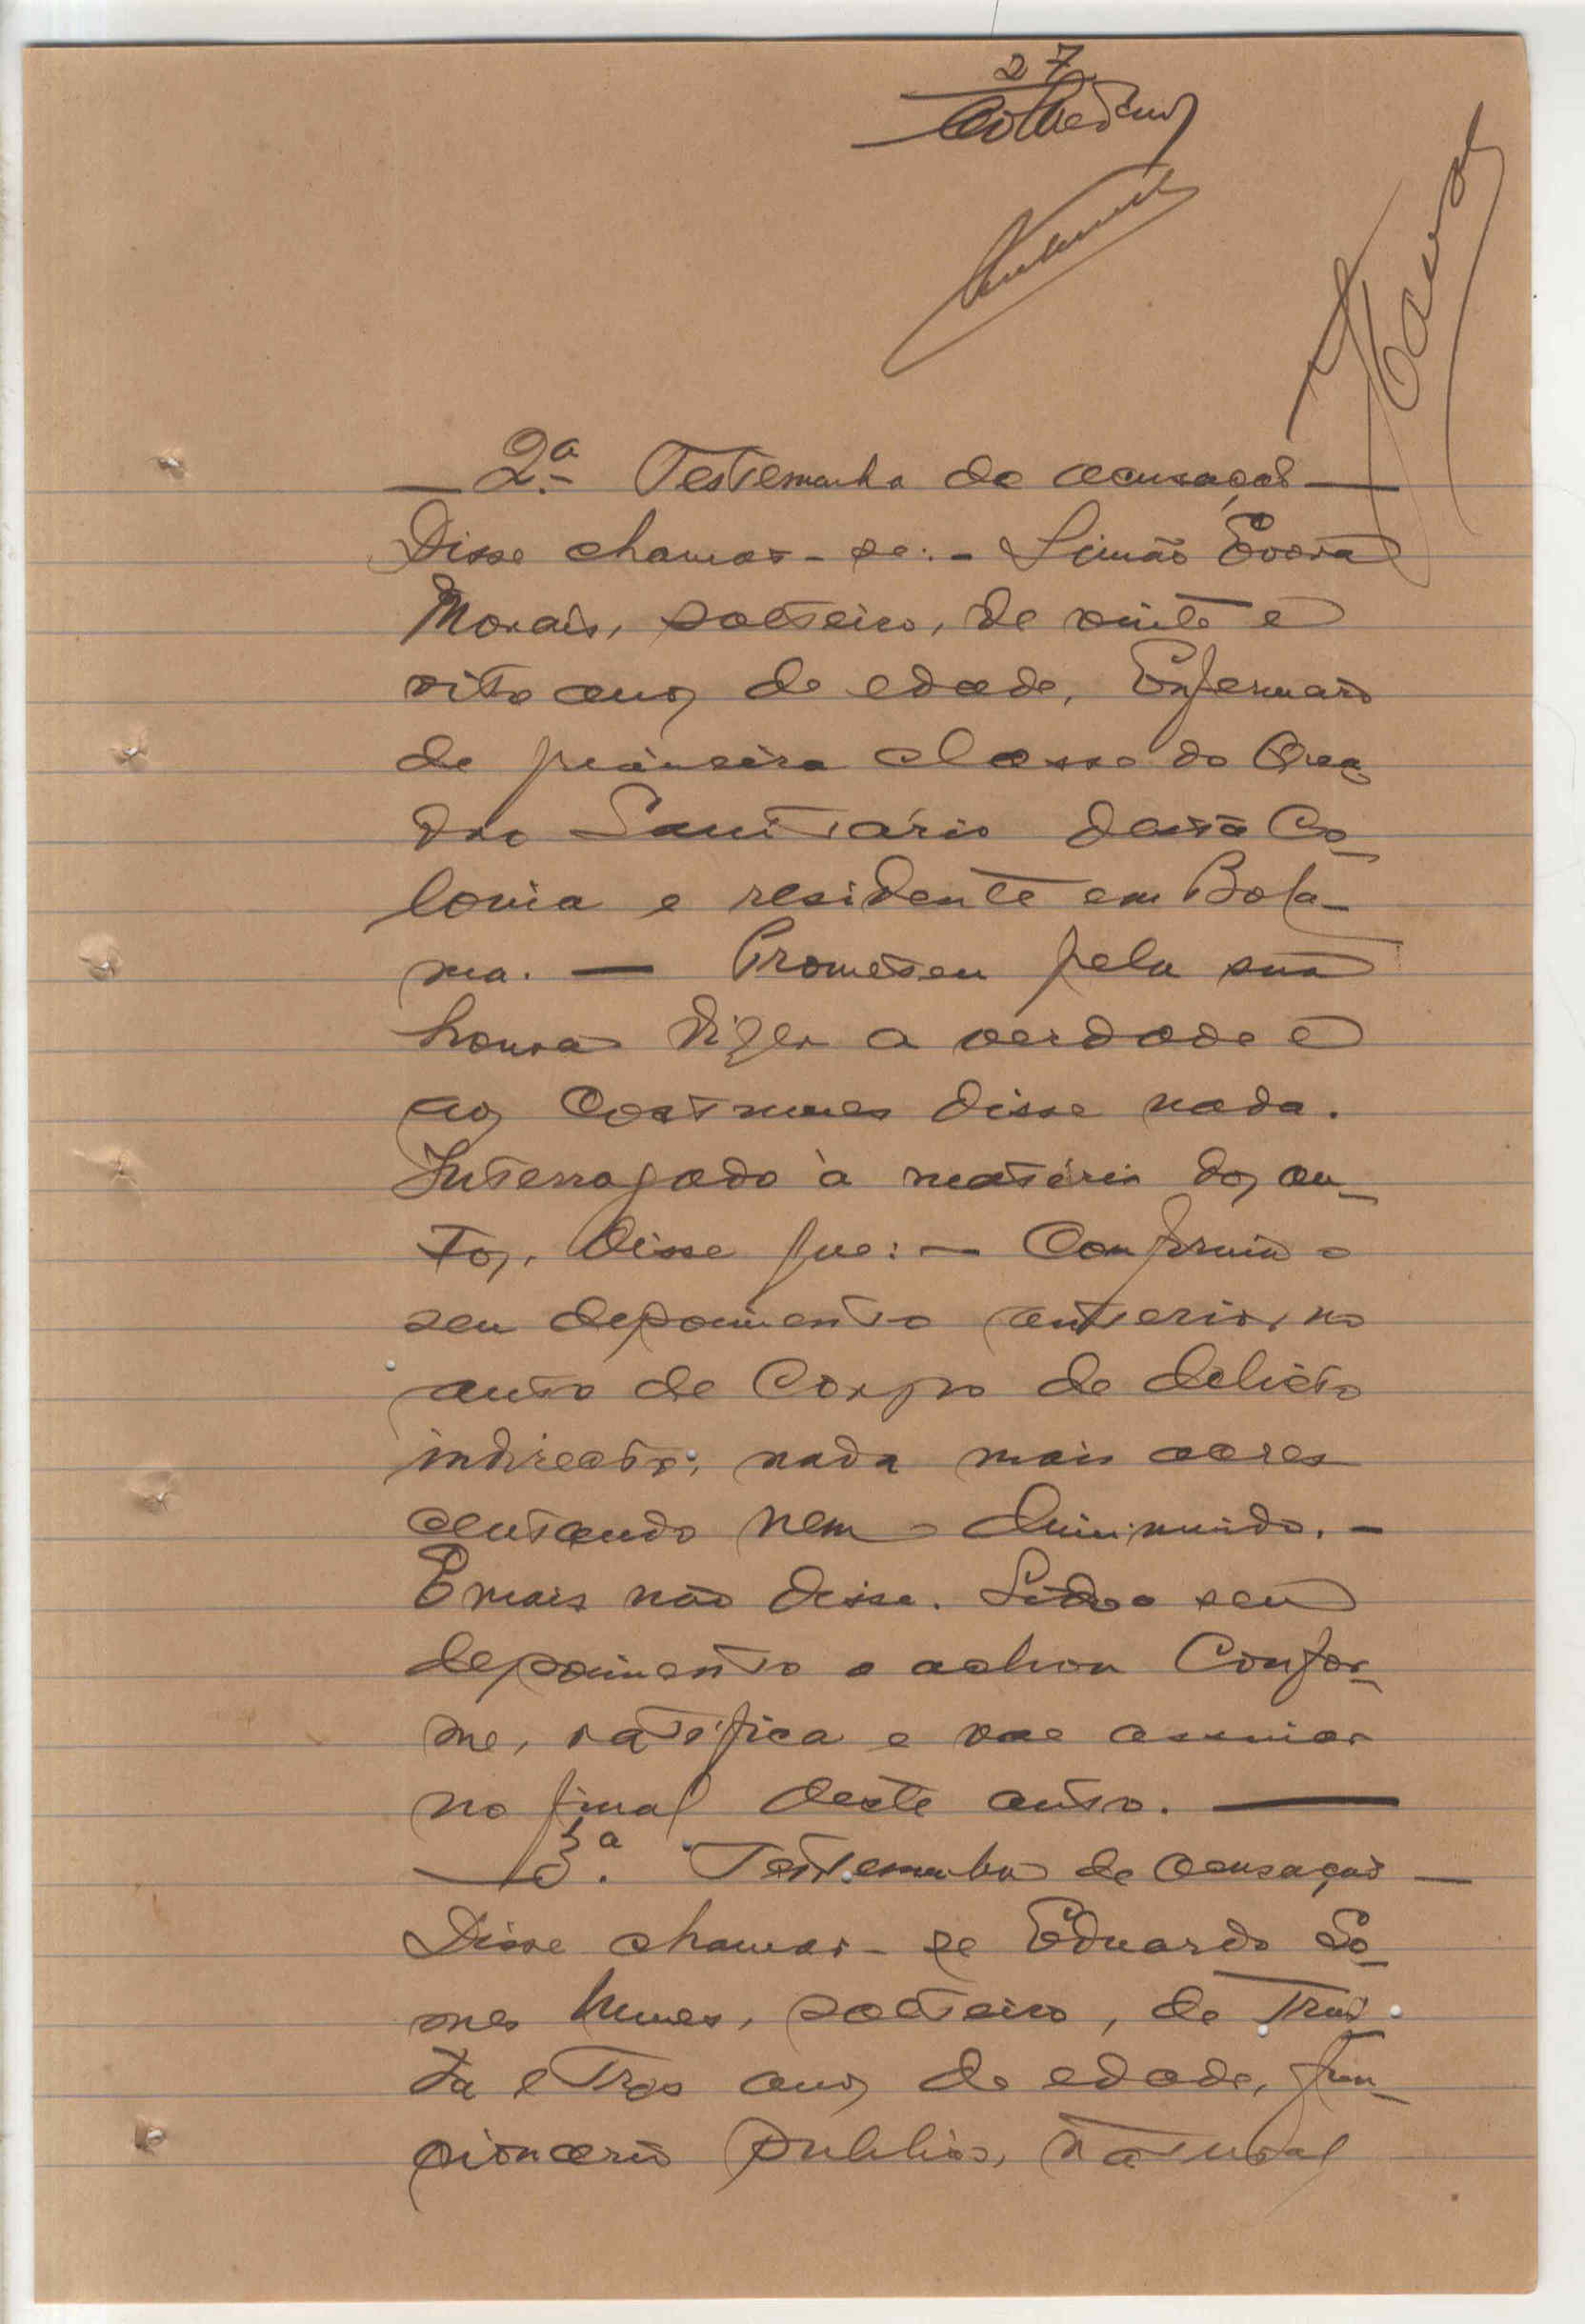 27
— 2.ª Testemunha de acusação —
Disse chamar-se:- Simão Évora
Morais, solteiro, de vinte e
oito anos de edade, Enfermeiro
de primeira classe do Qua-
dro Sanitário desta Co-
lonia e residente em Bola-
ma. — Prometeu pela sua
honra dizer a verdade e
aos costumes disse nada.
Interrogado à matéria dos au-
tos, disse que: — Confirma o
seu depoimento anterior, no
auto de Corpo de delicto
indirecto; nada mais acres
centando nem diminuindo. —
E mais não disse. Lido o seu
depoimento o achou Confor-
me, ratifica e vae assinar
no final deste auto. —
— 3.ª Testemunha de acusação —
Disse chamar-se Eduardo Go-
mes Nunes, solteiro, de Trin-
ta e Tres anos de edade, fun-
cionario publico, natural